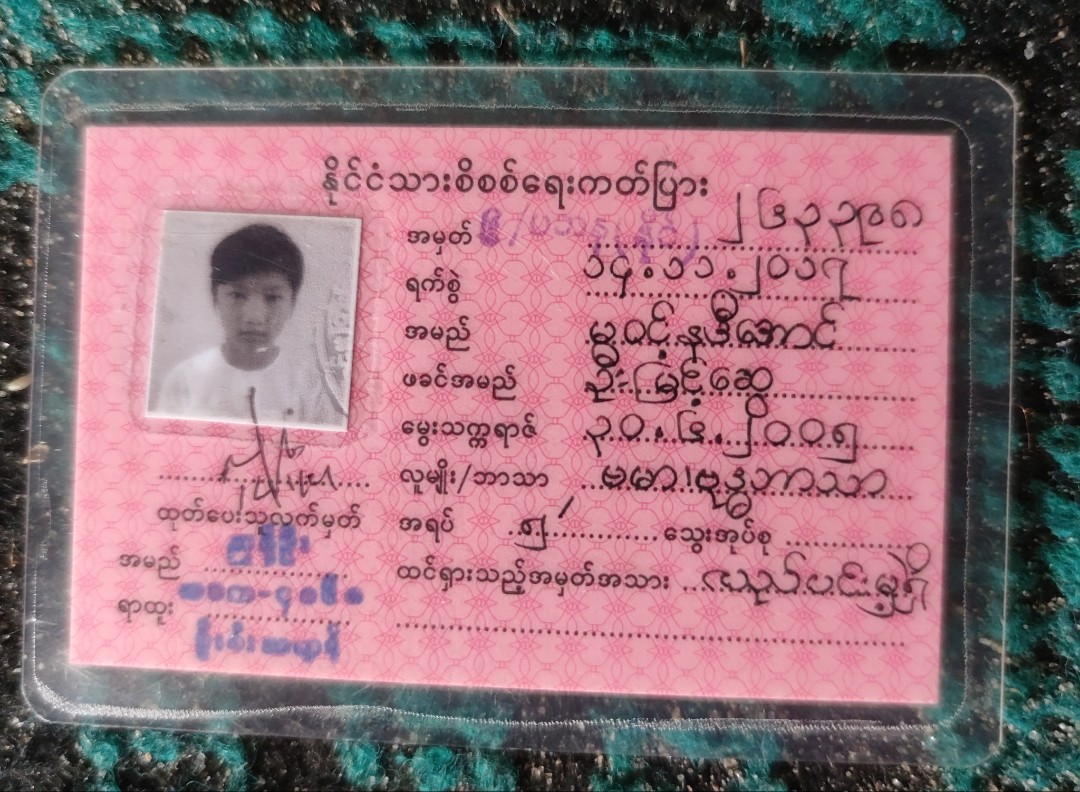 နိုင်ငံသားစိစစ်ရေးကတ်ပြား
အမှတ် ၉/ပသန(နိုင်) ၂၆၃၃၉၈
ရက်စွဲ ၁၄.၁၁.၂၀၁၇
အမည် မဝင့်နဒီအောင်
ဖခင်အမည် ဦးမြင့်ဆွေ
မွေးသက္ကရာဇ် ၃၀.၆.၂၀၀၅
လူမျိုး/ဘာသာ ဗမာ၊ဗုဒ္ဓဘာသာ
အရပ် ၅'
သွေးအုပ်စု
ထင်ရှားသည့်အမှတ်အသား လည်ပင်းမှဲ့ရှိ
ထုတ်ပေးသူလက်မှတ်
အမည်
ရာထူး